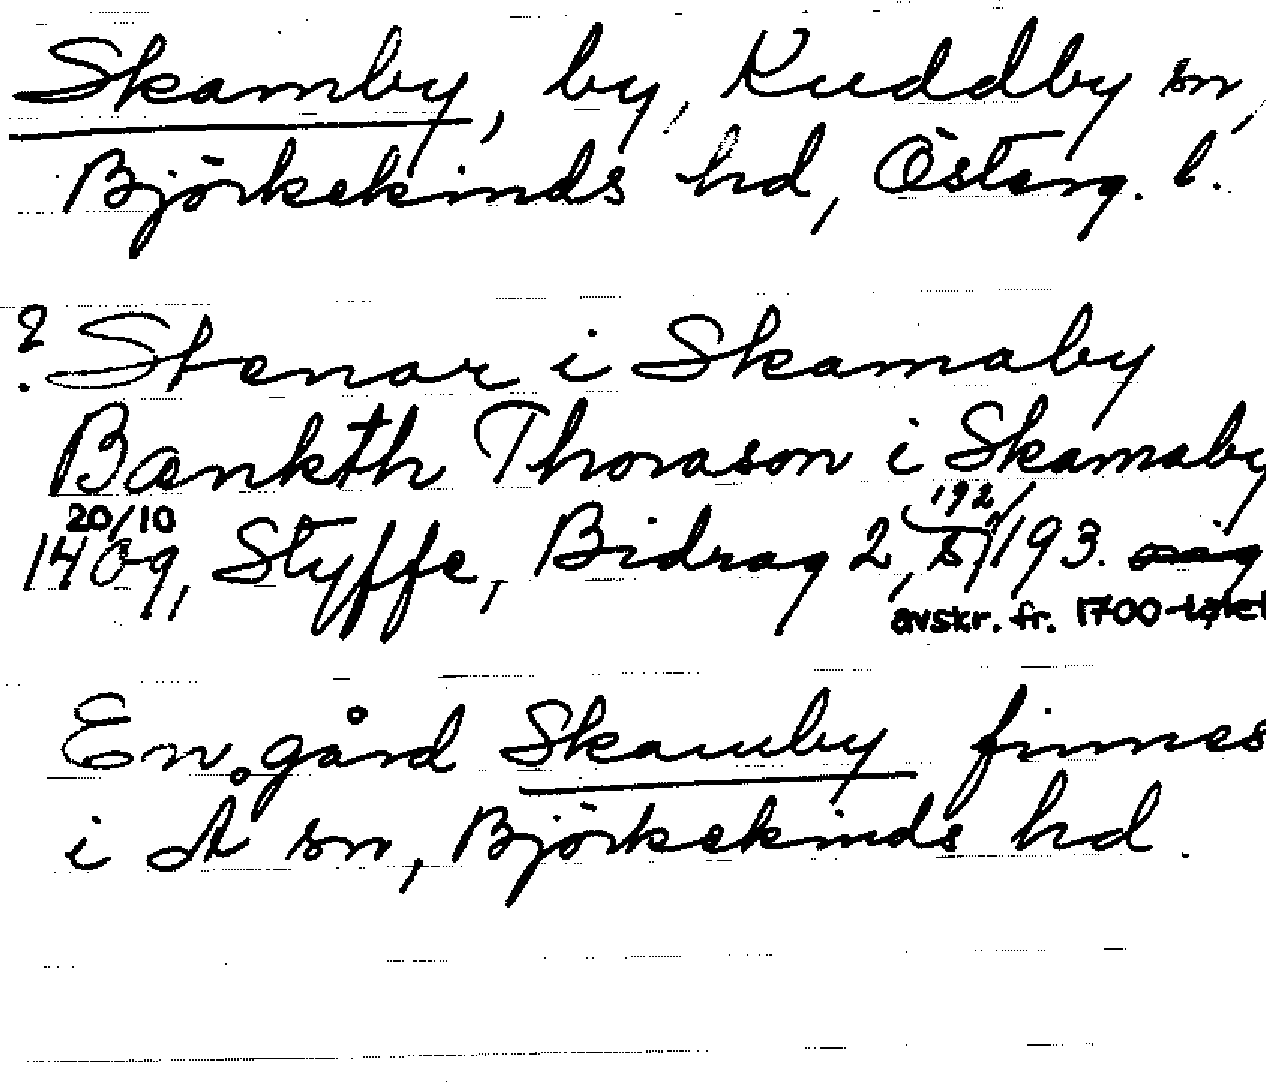 Skamby, by, Kuddby sn,
Björkekinds hd, Österg. l.
? Stenar i Skamaby
Bænkth Thorason i Skamaby
20/10
1409, Styffe, Bidrag 2, 192/193.
avskr. fr. 1700-talet
En gård Skamby finnes
i Å sn, Björkekinds hd.